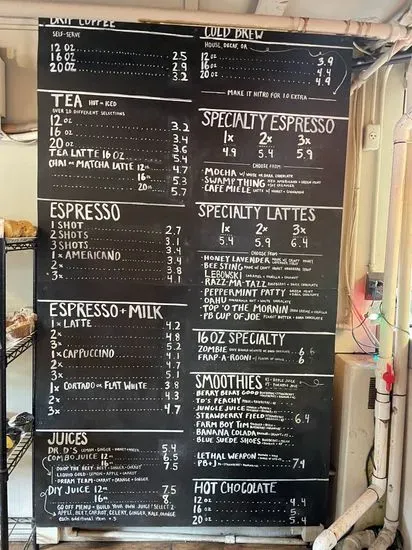 DRIP COFFEE
SELF-SERVE
12 OZ 2.5
16 OZ 2.9
20 OZ 3.2
TEA HOT or ICED
OVER 20 DIFFERENT SELECTIONS
12 OZ 3.2
16 OZ 3.4
20 OZ 3.6
TEA LATTE 16 OZ 5.4
CHAI or MATCHA LATTE 12oz 4.7
16oz 5.3
20oz 5.7
ESPRESSO
1 SHOT 2.7
2 SHOTS 3.1
3 SHOTS 3.4
1x AMERICANO 3.4
2x 3.8
3x 4.1
ESPRESSO + MILK
1x LATTE 4.2
2x 4.8
3x 5.2
1x CAPPUCCINO 4.1
2x 4.7
3x 5.1
1x CORTADO or FLAT WHITE 3.8
2x 4.3
3x 4.7
JUICES
DR. D'S LEMON + GINGER 5.4
COMBO JUICE 12oz 6.5
16oz 7.5
DROP THE BEET - BEET + GINGER + CARROT
LIQUID GOLD - LEMON + APPLE + CARROT
DREAM TEAM - CARROT + ORANGE + GINGER
DIY JUICE 12oz 7.5
16oz 8.
GO OFF MENU + BUILD YOUR OWN JUICE! SELECT 2
APPLE, BEET, CARROT, CELERY, GINGER, KALE, ORANGE
each additional item + .5
COLD BREW
HOUSE, DECAF, OR
12 OZ 3.9
16 OZ 4.4
20 OZ 4.9
MAKE IT NITRO FOR 1.0 EXTRA
SPECIALTY ESPRESSO
1x 2x 3x
4.9 5.4 5.9
CHOOSE FROM
MOCHA W/ WHITE OR DARK CHOCOLATE
SWAMP THING
CAFE MIELE LATTE W/ HONEY + CINNAMON
SPECIALTY LATTES
1x 2x 3x
5.4 5.9 6.4
CHOOSE FROM
HONEY LAVENDER
BEE STING
LEBOWSKI
RAZZ-MA-TAZZ
PEPPERMINT PATTY
OAHU
TOP 'O THE MORNIN
PB CUP OF JOE PEANUT BUTTER + DARK CHOCOLATE
16 OZ SPECIALTY
ZOMBIE 6
FRAP-A-ROONI 6
SMOOTHIES
BERRY BERRY GOOD
TO'S PEACHY
JUNGLE JUICE
STRAWBERRY FIELD 6.4
FARM BOY TIM
BANANA COLADA
BLUE SUEDE SHOES
LETHAL WEAPON
PB+J 7.9
HOT CHOCOLATE
12 OZ 4.4
16 OZ 5.
20 OZ